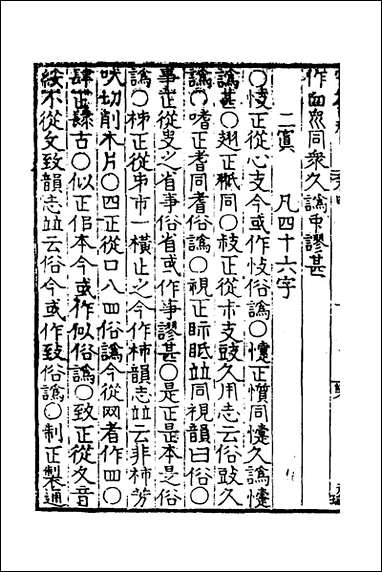 作㐺同衆久譌甲謬甚
二寘　凡四十六字
○忮正從心支今或作忮俗譌○懥正懫同懥久譌懥
譌甚○翅正䎀同○豉正從尗支豉久用志云俗豉久
譌○嗜正耆同耆俗譌○視正眎眡竝同視韻曰俗○
事正從史之省事俗省或作亊謬甚○是正昰本是俗
譌○柹正從巿巿一橫止之今作柿韻志竝云非柿芳
吠切削木片○四正從口八四俗譌今從网者作四○
肆正䥶古○似正佀本今或作似俗譌○致正從夊音
綏不從文致韻志竝云俗今或作致俗譌○制正製通